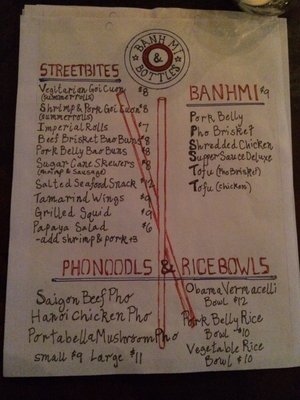 BANH MI
&
BOTTLES
STREETBITES
Vegitarian Goi Cuon $8
(summer rolls)
Shrimp & Pork Goi Cuon $8
(summer rolls)
Imperial Rolls $7
Beef Brisket Bao Buns $8
Pork Belly Bao Buns $8
Sugar Cane Skewers $8
(shrimp & Sausage)
Salted Seafood Snack $12
Tamarind Wings $9
Grilled Squid $9
Papaya Salad $6
-add shrimp & pork +3
BANHMI $9
Pork Belly
Pho Brisket
Shredded Chicken
Supper Sauce Deluxe
Tofu (Pho Brisket)
Tofu (Chicken)
PHO NOODLS & RICE BOWLS
Saigon Beef Pho
Hanoi Chicken Pho
Portabella Mushroom Pho
small $9 Large $11
Obama Vermacelli
Bowl $12
Pork Belly Rice
Bowl $10
Vegetable Rice
Bowl $10